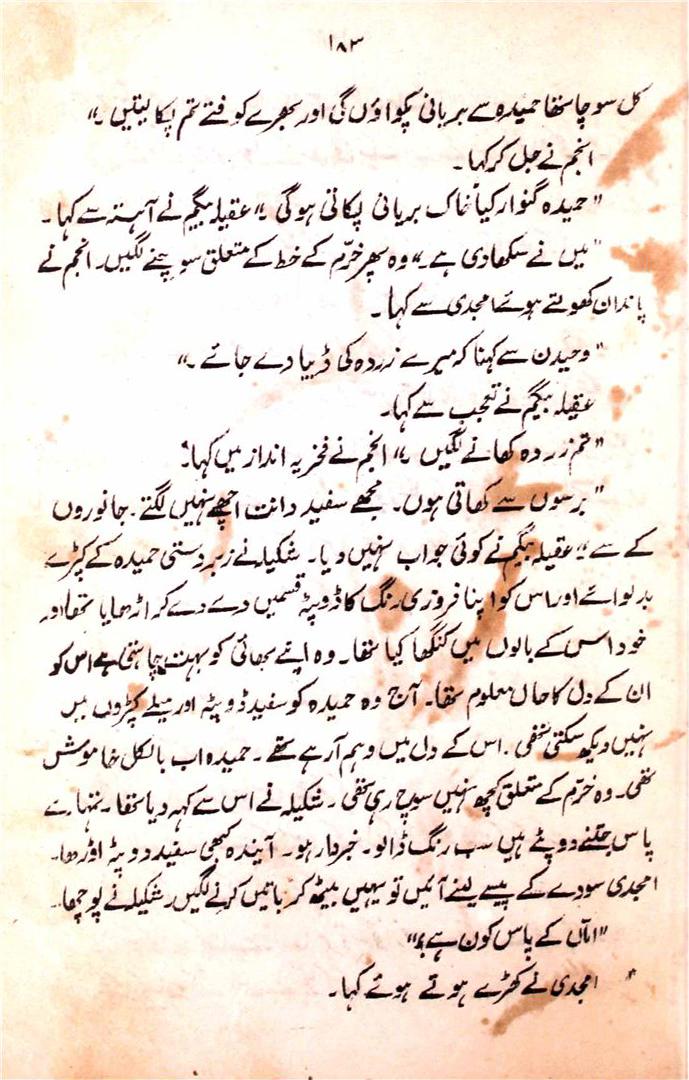 ۱۸۳
کل سوچا تھا حمیدہ سے بریانی پکواؤں گی اور بھرے کوفتے تم پکا لیتیں۔"
انجم نے جل کر کہا۔
"حمیدہ گنوار کیا خاک بریانی پکاتی ہوگی۔" عقیلہ بیگم نے آہستہ سے کہا۔
"میں نے سکھا دی ہے۔" وہ پھر خرّم کے خط کے متعلق سوچنے لگیں۔ انجم نے
پاندان کھولتے ہوئے امجدی سے کہا۔
"وحیدن سے کہنا کہ میرے زردہ کی ڈبیا دے جائے۔"
عقیلہ بیگم نے تعجب سے کہا۔
"تم زردہ کھانے لگیں۔" انجم نے فخریہ انداز میں کہا۔
"برسوں سے کھاتی ہوں۔ مجھے سفید دانت اچھے نہیں لگتے۔ جانوروں
کے سے۔" عقیلہ بیگم نے کوئی جواب نہیں دیا۔ شکیلہ نے زبردستی حمیدہ کے کپڑے
بدلوائے اور اس کو اپنا فروزی رنگ کا ڈوپٹہ قسمیں دے دے کر اڑھایا تھا اور
خود اس کے بالوں میں کنگھا کیا تھا۔ وہ اپنے بھائی کو بہت چاہتی ہے اس کو
ان کے دل کا حال معلوم تھا۔ آج وہ حمیدہ کو سفید ڈوپٹہ اور میلے کپڑوں میں
نہیں دیکھ سکتی تھی۔ اس کے دل میں وہم آ رہے تھے۔ حمیدہ اب بالکل خاموش
تھی۔ وہ خرّم کے متعلق کچھ نہیں سوچ رہی تھی۔ شکیلہ نے اس سے کہہ دیا تھا۔ تمہارے
پاس جتنے دوپٹے ہیں سب رنگ ڈالو۔ خبردار ہو۔ آئندہ کبھی سفید دوپٹہ اوڑھا۔
امجدی سودے کے پیسے لینے آئیں تو یہیں بیٹھ کر باتیں کرنے لگیں۔ شکیلہ نے پوچھا۔
"امّاں کے پاس کون ہے؟"
امجدی نے کھڑے ہوتے ہوئے کہا۔